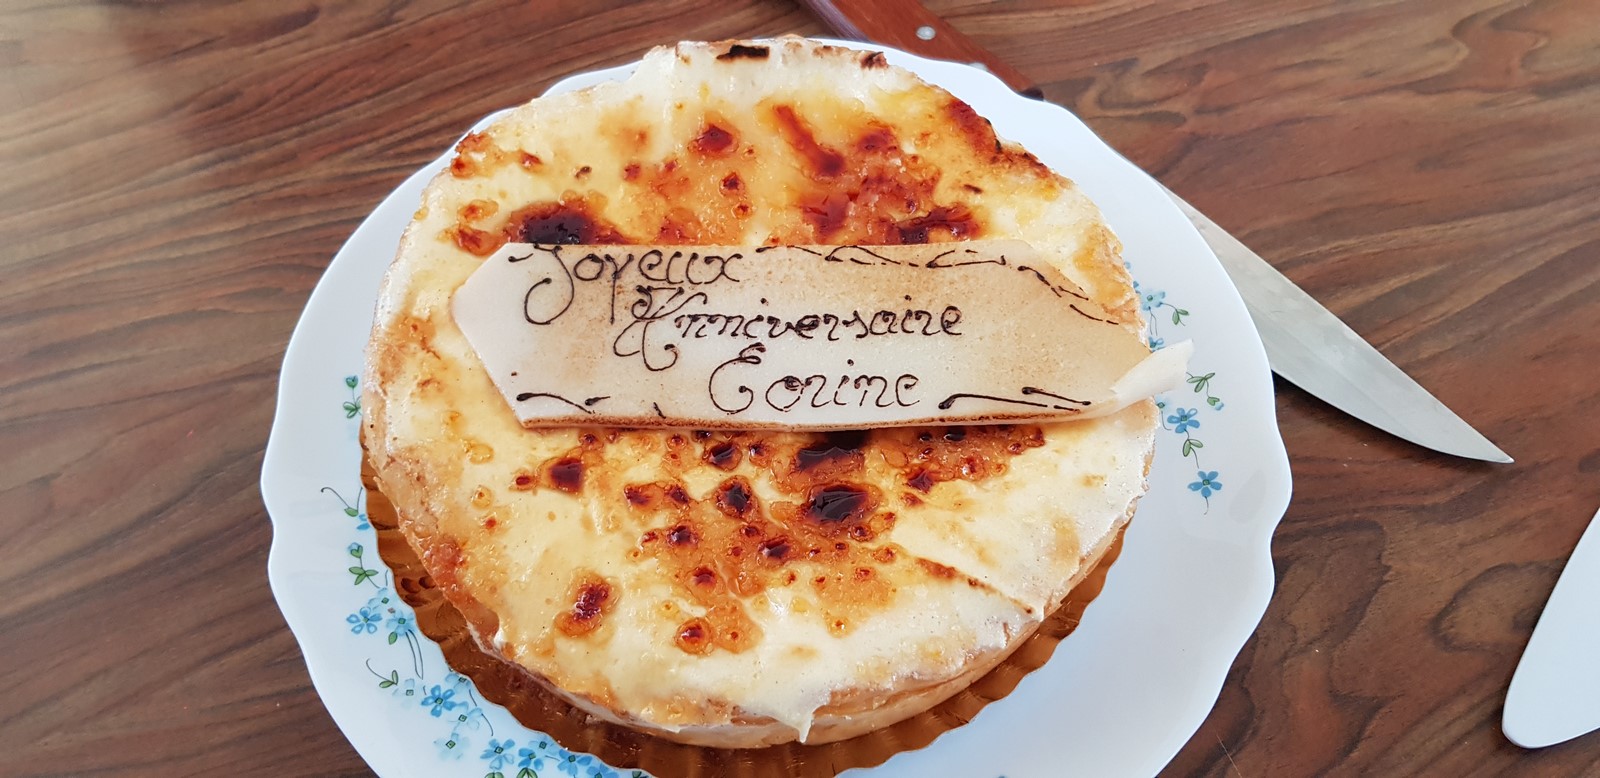 Joyeux
Anniversaire
Corine